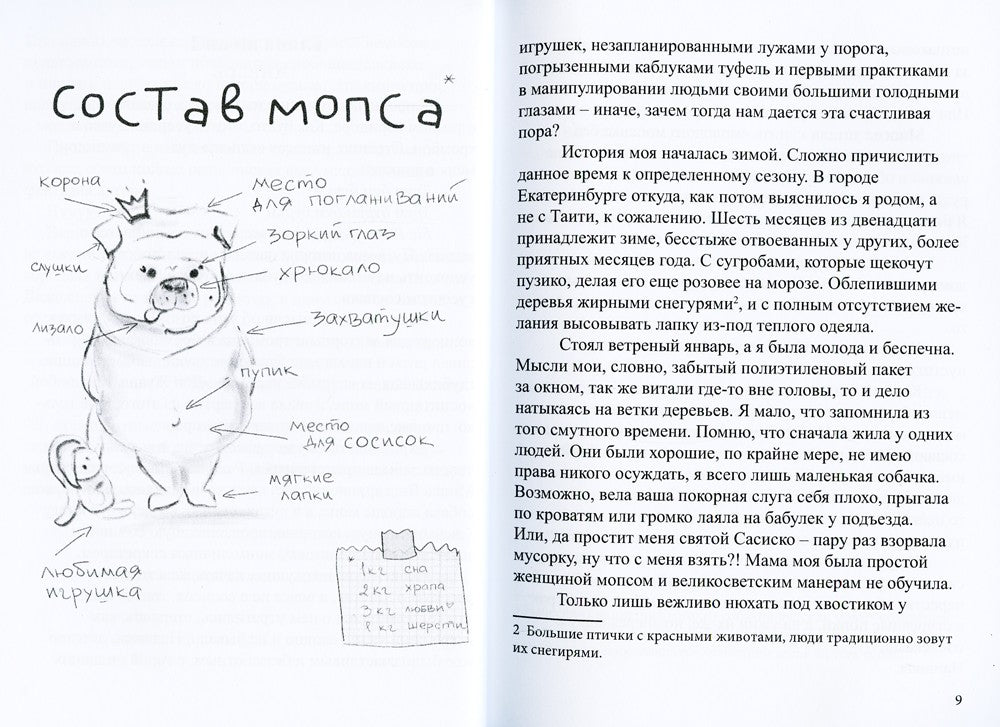 состав мопса*
корона
место
для поглаживаний
зоркий глаз
слушки
хрюкало
лизало
захватушки
пупик
место
для сосисок
мягкие
лапки
любимая
игрушка
* 1 кг сна
2 кг храпа
3 кг любви♡
8 кг шерсти
игрушек, незапланированными лужами у порога,
погрызенными каблуками туфель и первыми практиками
в манипулировании людьми своими большими голодными
глазами – иначе, зачем тогда нам дается эта счастливая
пора?
История моя началась зимой. Сложно причислить
данное время к определенному сезону. В городе
Екатеринбурге откуда, как потом выяснилось я родом, а
не с Таити, к сожалению. Шесть месяцев из двенадцати
принадлежит зиме, бесстыже отвоеванных у других, более
приятных месяцев года. С сугробами, которые щекочут
пузико, делая его еще розовее на морозе. Облепившими
деревья жирными снегурями², и с полным отсутствием же-
лания высовывать лапку из-под теплого одеяла.
Стоял ветреный январь, а я была молода и беспечна.
Мысли мои, словно, забытый полиэтиленовый пакет
за окном, так же витали где-то вне головы, то и дело
натыкаясь на ветки деревьев. Я мало, что запомнила из
того смутного времени. Помню, что сначала жила у одних
людей. Они были хорошие, по крайне мере, не имею
права никого осуждать, я всего лишь маленькая собачка.
Возможно, вела ваша покорная слуга себя плохо, прыгала
по кроватям или громко лаяла на бабулек у подъезда.
Или, да простит меня святой Сасиско – пару раз взорвала
мусорку, ну что с меня взять?! Мама моя была простой
женщиной мопсом и великосветским манерам не обучила.
Только лишь вежливо нюхать под хвостиком у
2 Большие птички с красными животами, люди традиционно зовут
их снегирями.
9